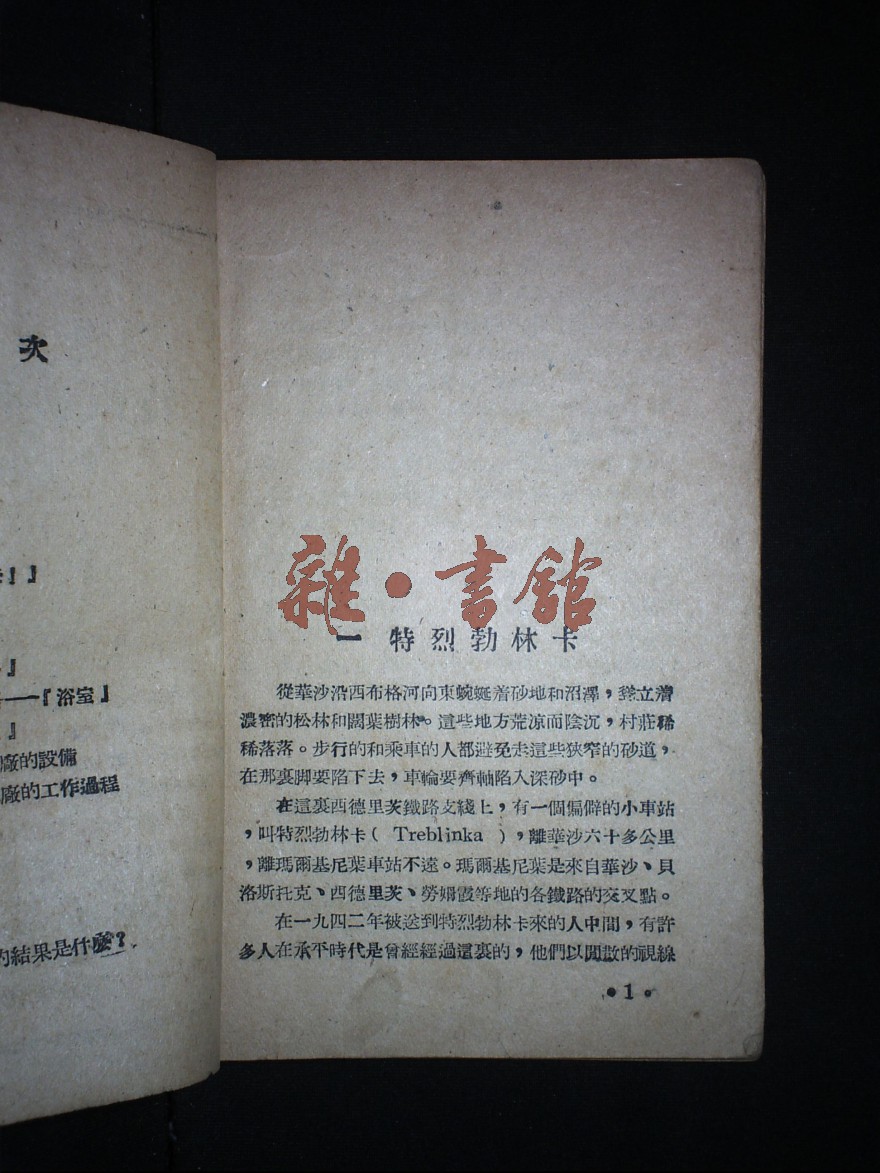 次
！』
』
——『浴室』
』
廠的設備
廠的工作過程
的結果是什麼？
雜·書館
一 特烈勃林卡
從華沙沿西布格河向東蜿蜒着砂地和沼澤，聳立着
濃密的松林和闊葉樹林。這些地方荒凉而陰沉，村莊稀
稀落落。步行的和乘車的人都避免走這些狹窄的砂道，
在那裏脚要陷下去，車輪要齊軸陷入深砂中。
在這裏西德里茨鐵路支綫上，有一個偏僻的小車站
，叫特烈勃林卡( Treblinka )，離華沙六十多公里
，離瑪爾基尼葉車站不遠。瑪爾基尼葉是來自華沙、貝
洛斯托克、西德里茨、勞姆霞等地的各鐵路的交叉點。
在一九四二年被送到特烈勃林卡來的人中間，有許
多人在承平時代是曾經經過這裏的，他們以閒散的視線
•1•